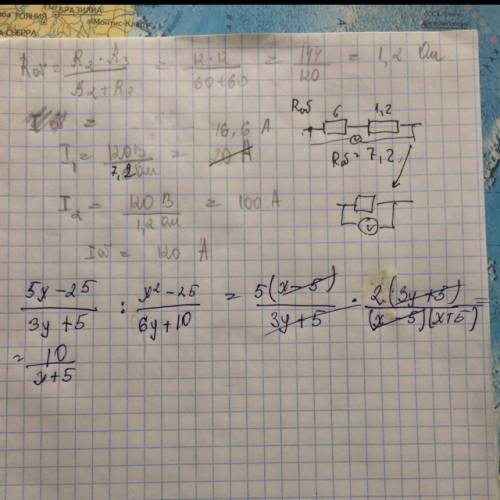 БРАЗИЛИА
Rоб = R₂ · R₃ / R₂ + R₂ = 12 · 12 / 60+60 = 144 / 120 = 1,2 Ом
16,6 А
I₁ = 120В / 7,2 Ом =
I₂ = 120 В / 1,2 Ом = 100 А
Iоб = 120 А
Rоб 6 1,2
Rоб = 7,2
V
5x – 25 / 3y + 5 : x² – 25 / 6y + 10 = 5(x – 5) / 3y + 5 · 2(3y + 5) / (x – 5)(x + 5) =
= 10 / x + 5